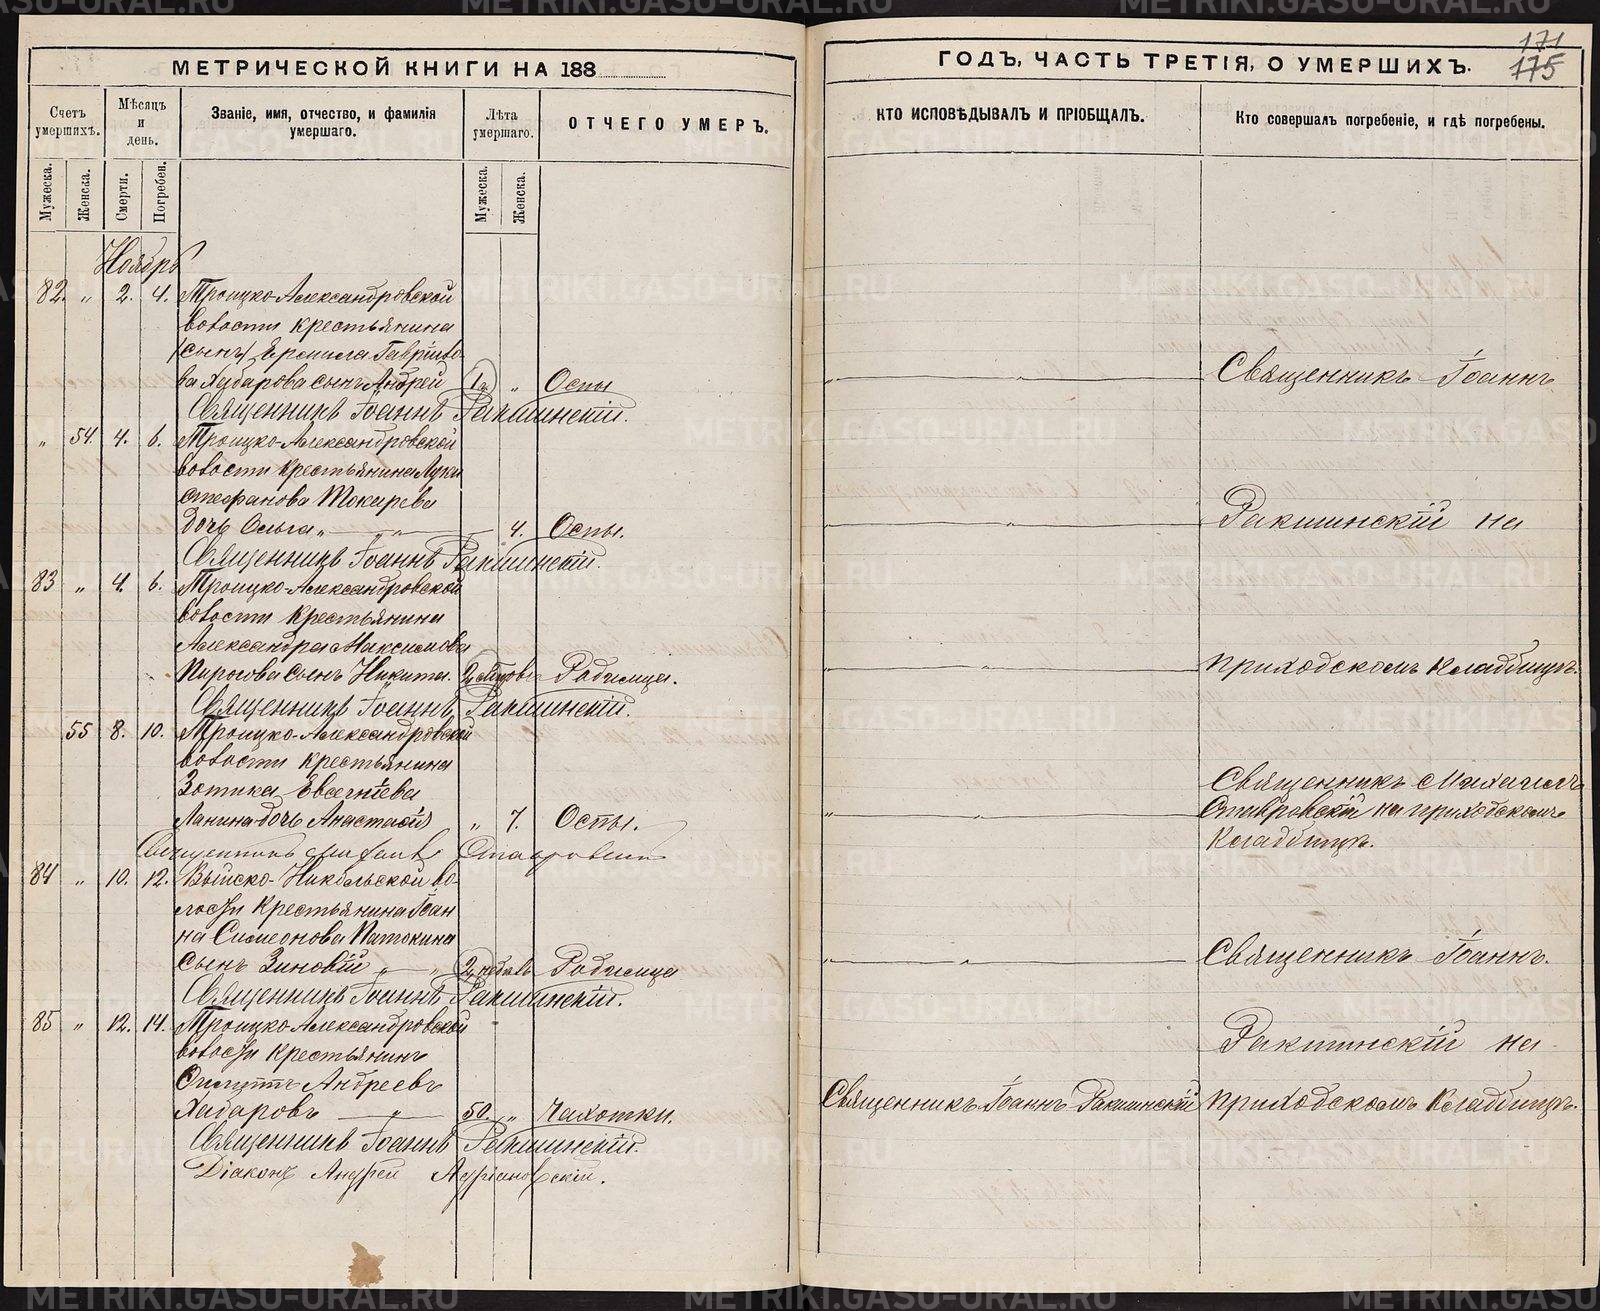 МЕТРИЧЕСКОЙ КНИГИ НА 188
Счетъ умершихъ.
Мѣсяцъ и день.
Званіе, имя, отчество, и фамилія умершаго.
Лѣта умершаго.
ОТЧЕГО УМЕРЪ.
Мужеска.
Женска.
Смерти.
Погребен.
Мужеска.
Женска.
Ноябрь
82. „ 2. 4. Троицко-Александровской
волости крестьянина
(сынъ) Ермила Гаврило-
ва Хабарова сынъ Андрей 1 г. „ Оспы
Священникъ Іоаннъ Ракшинскій.
„ 54. 4. 6. Троицко-Александровской
волости крестьянина Луки
Стефанова Токарева
дочь Ольга „ 4. Оспы.
Священникъ Іоаннъ Ракшинскій.
83 „ 4. 6. Троицко-Александровской
волости крестьянина
Александра Максимова
Пирогова сынъ Никита. Родимца.
Священникъ Іоаннъ Ракшинскій.
55 8. 10. Троицко-Александровской
волости крестьянина
Зотика Евсегніева
Ланина дочь Анастасія „ 7. Оспы.
Священникъ Михаилъ Ставровскій
84 „ 10. 12. Выйско-Никольской во-
лости крестьянина Іоан
на Симеонова Патокина
сынъ Зиновій „ 2 недѣль Родимца
Священникъ Іоаннъ Ракшинскій.
85 „ 12. 14. Троицко-Александровской
волости крестьянинъ
Андреевъ
Хабаровъ „ 50. „ Чахотки.
Священникъ Іоаннъ Ракшинскій.
Діаконъ Андрей Адріановскій.
171
175
ГОДЪ, ЧАСТЬ ТРЕТІЯ, О УМЕРШИХЪ.
КТО ИСПОВѢДЫВАЛЪ И ПРІОБЩАЛЪ.
Кто совершалъ погребеніе, и гдѣ погребены.
Священникъ Іоаннъ
Ракшинскій на
приходскомъ кладбищѣ.
Священникъ Михаилъ
Ставровскій на приходскомъ
кладбищѣ.
Священникъ Іоаннъ.
Ракшинскій на
Священникъ Іоаннъ Ракшинскій приходскомъ кладбищѣ.
METRIKI.GASO-URAL.RU